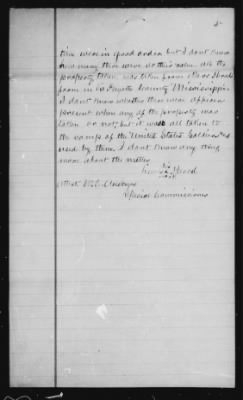 time were in good order but I don't know
how many there were at this time all the
property taken was taken from
from in La Fayette County Mississippi
I don't know whether there were officers
present when any of the property was
taken or not, but it was all taken to
the camps of the United States Soldiers and
used by them I don't know any thing
more about the matter
his
mark
Attest
Special Commissioner